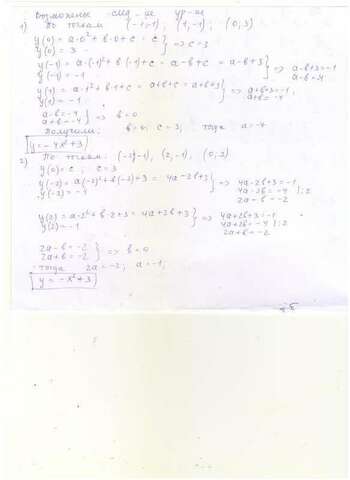 Возможны след-ие ур-ия
1) По точкам (-1;-1); (1;-1); (0;3)
y(0) = a·0² + b·0 + c = c } => c = 3
y(0) = 3
y(-1) = a·(-1)² + b·(-1) + c = a-b+c = a-b+3 } => a-b+3=-1
y(-1) = -1 a-b=-4
y(1) = a·1² + b·1 + c = a+b+c = a+b+3 } => a+b+3=-1
y(1) = -1 a+b=-4
a-b=-4 } => b=0
a+b=-4
Получили: b=0; c=3; тогда a=-4
y=-4x²+3
2) По точкам: (-2;-1), (2,-1), (0,3)
y(0)=c; c=3
y(-2)=a(-2)²+b(-2)+3 = 4a-2b+3 } => 4a-2b+3=-1
y(-2)=-1 4a-2b=-4 |:2
2a-b=-2
y(2)=a·2²+b·2+3=4a+2b+3 } => 4a+2b+3=-1
y(2)=-1 4a+2b=-4 |:2
2a+b=-2
2a-b=-2 } => b=0
2a+b=-2
тогда 2a=-2; a=-1;
y=-x²+3